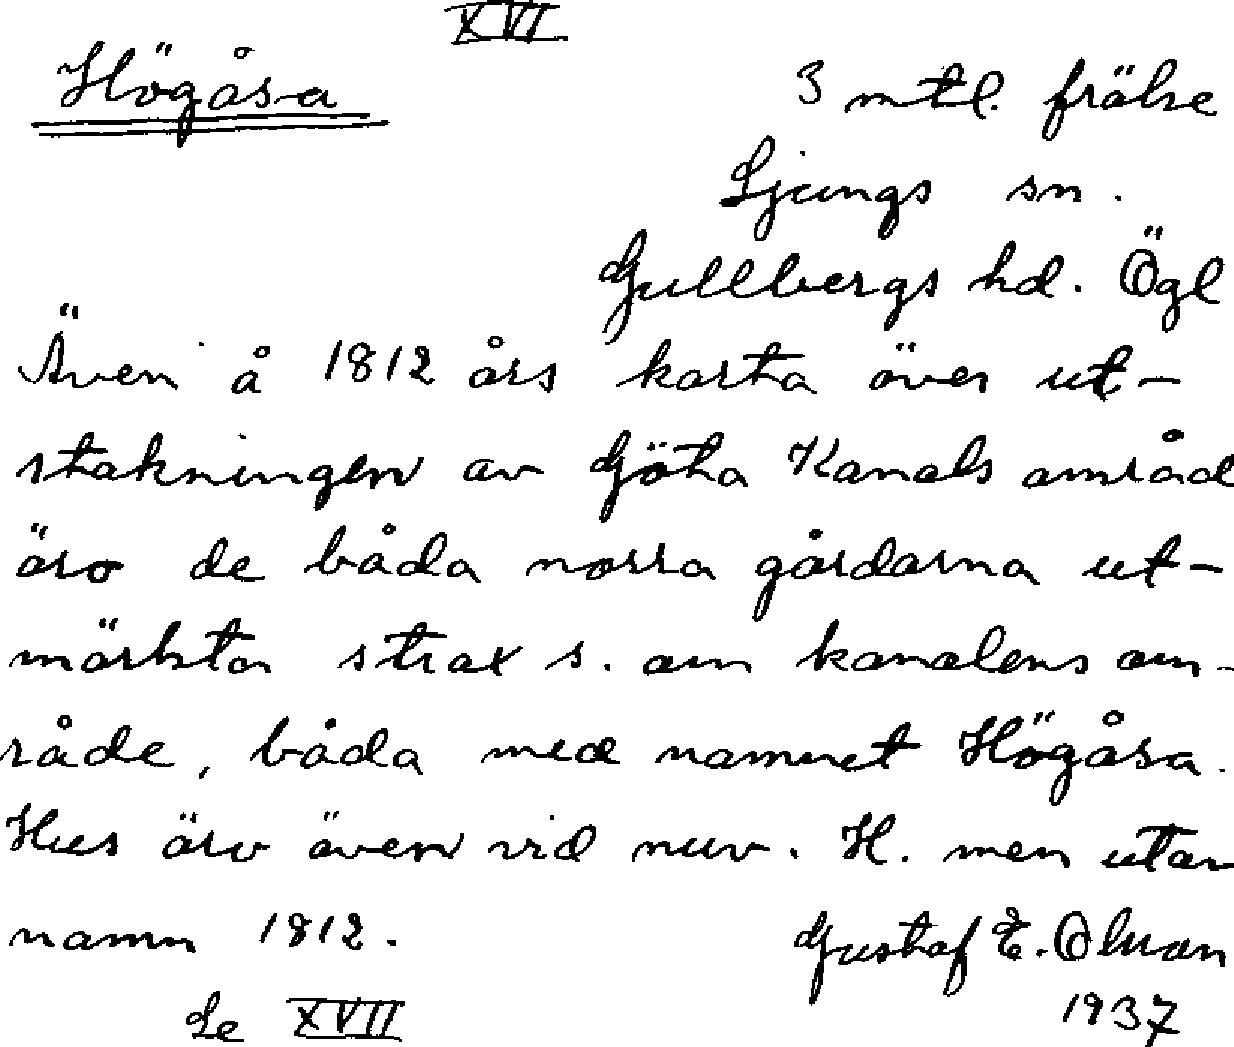 XVI
Högåsa
3 mtl. frälse
Ljungs sn.
Gullbergs hd. Ögl
Även å 1812 års karta över ut-
stakningen av Göta Kanals områd
äro de båda norra gårdarna ut-
märkta strax s. om kanalens om-
råde, båda med namnet Högåsa.
Hus äro även vid nuv. H. men utan
namn 1812.
Gustaf E. Olman
Se XVII
1937